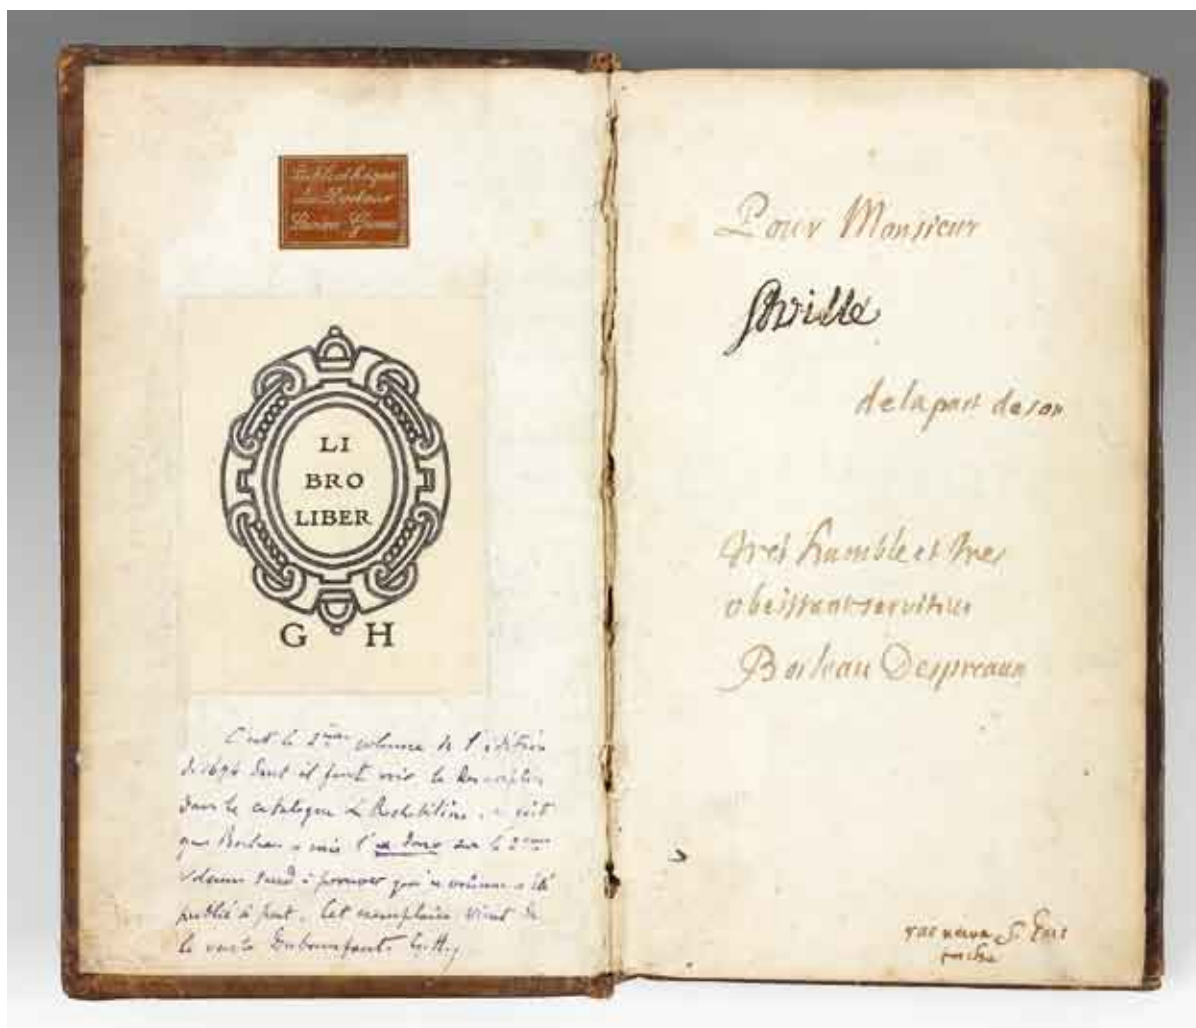 Bibliothèque
du Docteur
Lucien Graux
LI
BRO
LIBER
G H
C'est le 2ème volume de l'édition
de 1694 dont il faut voir la description
dans le catalogue La Rochebilière. 
que Boileau a mis l'ex dono sur le 2ème
volume tend à prouver que ce volume a été
publié à part. Cet exemplaire vient de
la vente
Pour Monsieur
de la part de son
tres humble et tres
obeissant serviteur
Boileau Despreaux
rue neuve S.